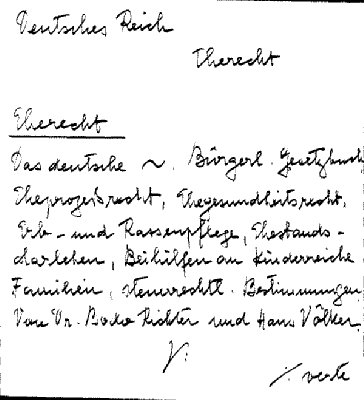 Deutsches Reich
Eherecht
Eherecht
Das deutsche ~. Bürgerl. Gesetzbuch,
Eheprozeßrecht, Ehegesundheitsrecht,
Erb- und Rassenpflege, Ehestands-
darlehen, Beihilfen an kinderreiche
Familien, steuerrechtl. Bestimmungen
Von Dr. Bodo Richter und Hans Völker.
./. verte